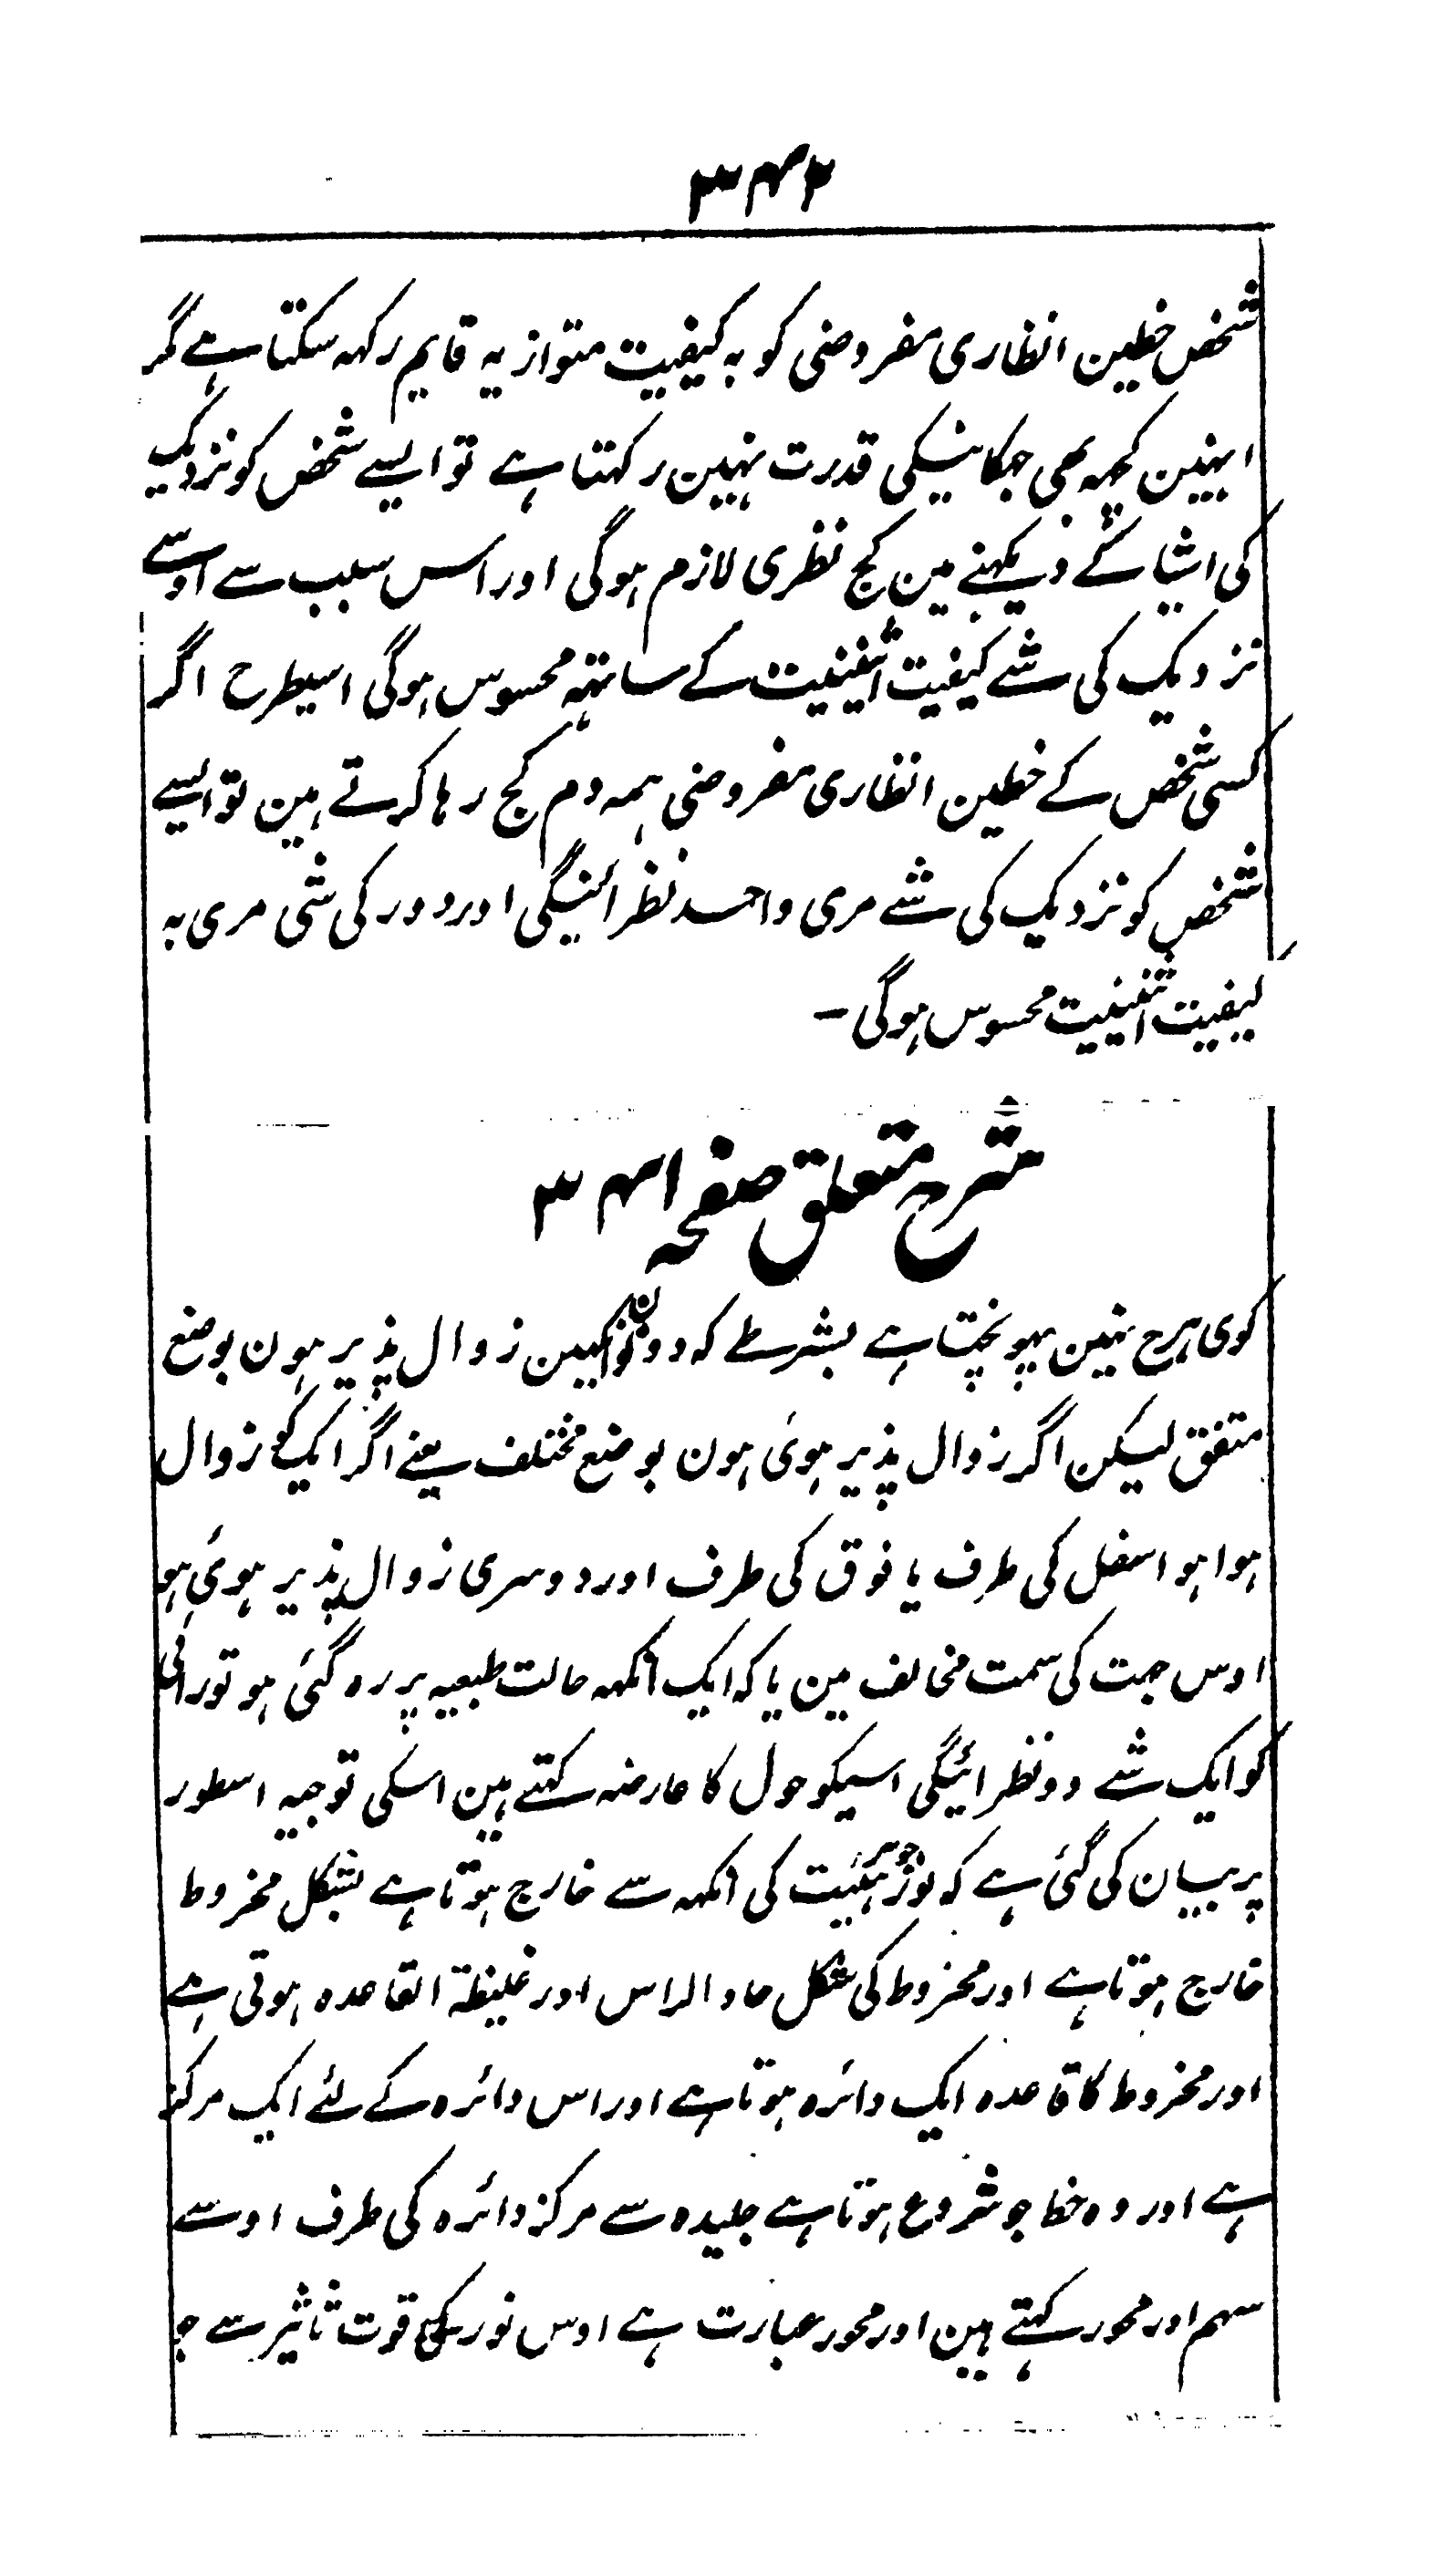 ۳۴۲
شخص خطین انظاری مفروضی کو بہ کیفیت متوازیہ قایم رکہہ سکتا ہے گر
انہین کچہہ بھی جہکانیکی قدرت نہین رکہتا ہے تو ایسے شخص کو نزدیک
کی اشیا کے دیکہنے مین کج نظری لازم ہوگی اور اس سبب سے اوسے
نزدیک کی شے کیفیت اثنینیت کے ساتہہ محسوس ہوگی اسیطرح اگر
کسی شخص کے خطین انظاری مفروضی ہمہ دم کج رہا کرتے ہین تو ایسے
شخص کو نزدیک کی شے مری واحد نظر ائینگی اور دور کی شی مری بہ
کیفیت اثنینیت محسوس ہوگی -
شرح متعلق صفحہ ۳۴۱
کوی ہرج نہین پہونچتا ہے بشرطے کہ دونون انکہین زوال پذیر ہون بوضع
متفق لیکن اگر زوال پذیر ہوئی ہون بوضع مختلف یعنے اگر ایک کو زوال
ہوا ہو اسفل کی طرف یا فوق کی طرف اور دوسری زوال پذیر ہوئی ہو
اوس جہت کی سمت مخالف مین یا کہ ایک انکہہ حالت طبعیہ پر رہ گئی ہو تو رائی
کو ایک شے دو نظر ائیگی اسیکو حول کا عارضہ کہتے ہین اسکی توجیہ اسطور
پر بیان کی گئی ہے کہ نور جو ہئیت کی انکہہ سے خارج ہوتا ہے بشکل مخروط
خارج ہوتا ہے اور مخروط کی شکل حاد الراس اور غلیظۃ القاعدہ ہوتی ہے
اور مخروط کا قاعدہ ایک دائرہ ہوتا ہے اور اس دائرہ کے لئے ایک مرکز
ہے اور وہ خط جو شروع ہوتا ہے جلیدہ سے مرکز دائرہ کی طرف اوسے
سہم اور محور کہتے ہین اور محور عبارت ہے اوس نور کی قوت تاثیر سے جو